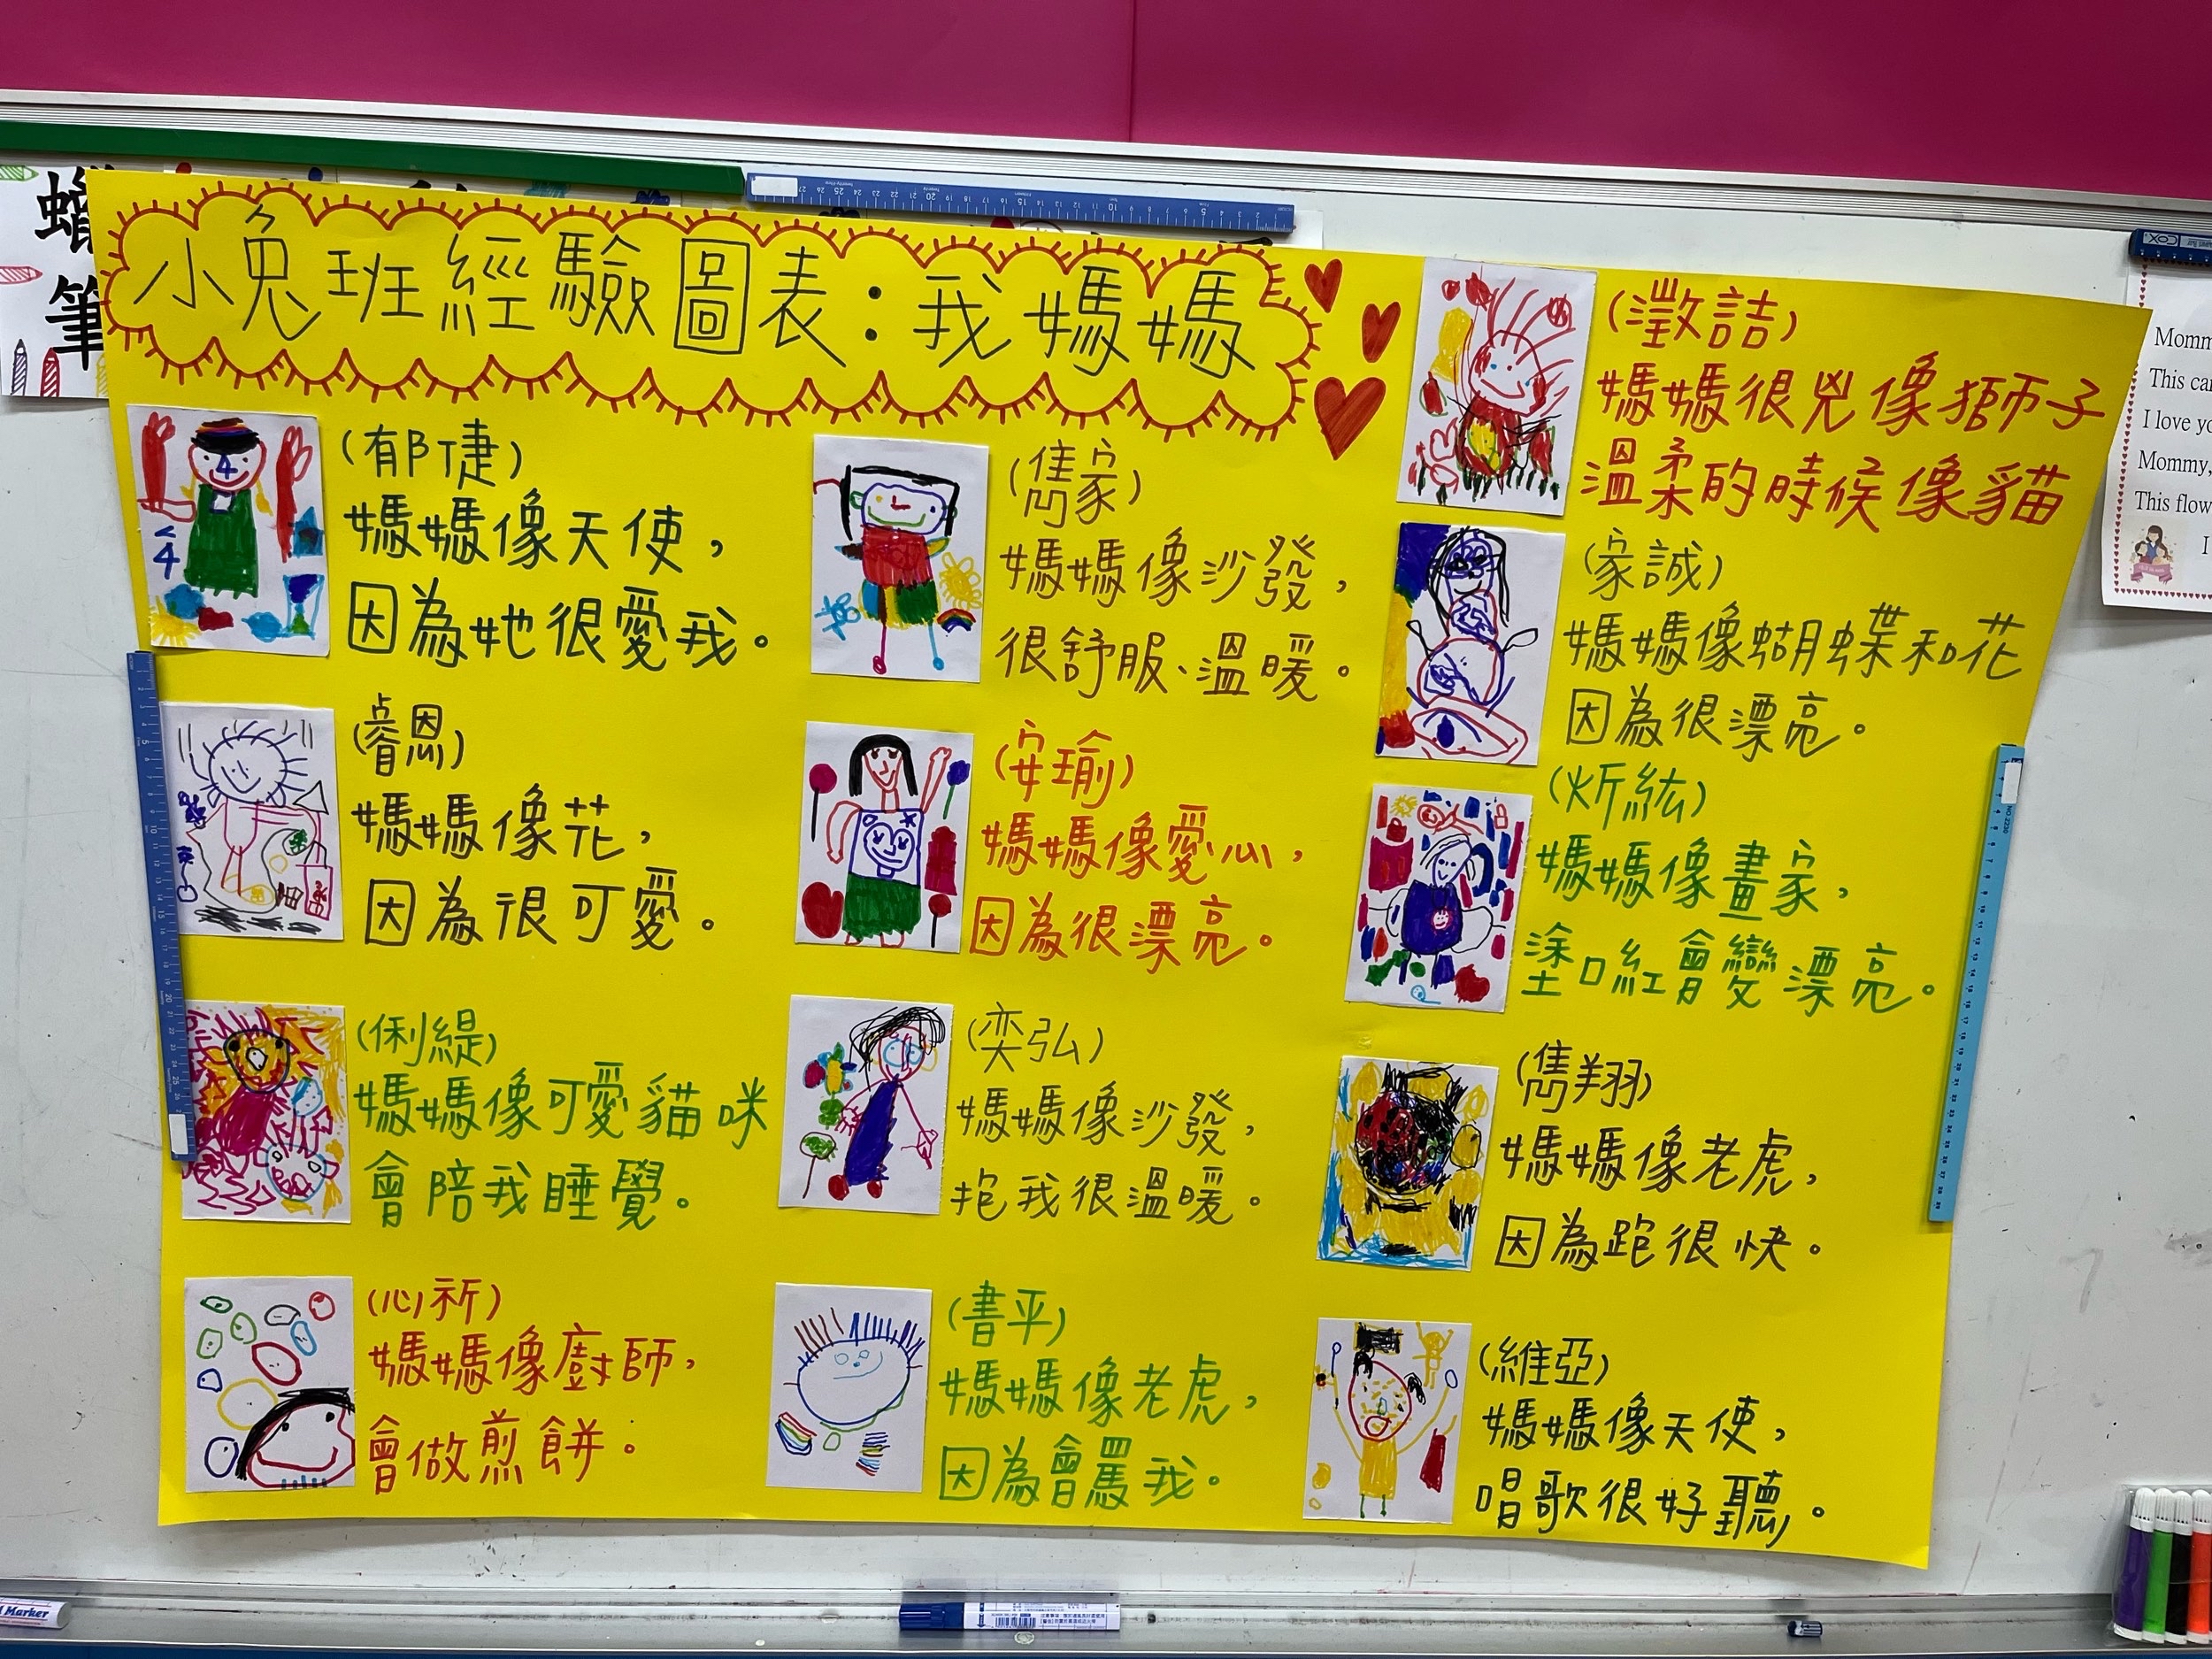 蠟
筆
小兔班經驗圖表：我媽媽
(郁倢)
媽媽像天使，
因為她很愛我。
(睿恩)
媽媽像花，
因為很可愛。
(俐緹)
媽媽像可愛貓咪
會陪我睡覺。
(心祈)
媽媽像廚師，
會做煎餅。
(雋家)
媽媽像沙發，
很舒服、溫暖。
(安瑜)
媽媽像愛心，
因為很漂亮。
(奕弘)
媽媽像沙發，
抱我很溫暖。
(書平)
媽媽像老虎，
因為會罵我。
(瀓詰)
媽媽很兇像獅子
溫柔的時候像貓
(家誠)
媽媽像蝴蝶和花
因為很漂亮。
(炘紘)
媽媽像畫家，
塗口紅會變漂亮。
(雋翔)
媽媽像老虎，
因為跑很快。
(維亞)
媽媽像天使，
唱歌很好聽。
This
I love
Mommy,
This flow
I
Marker